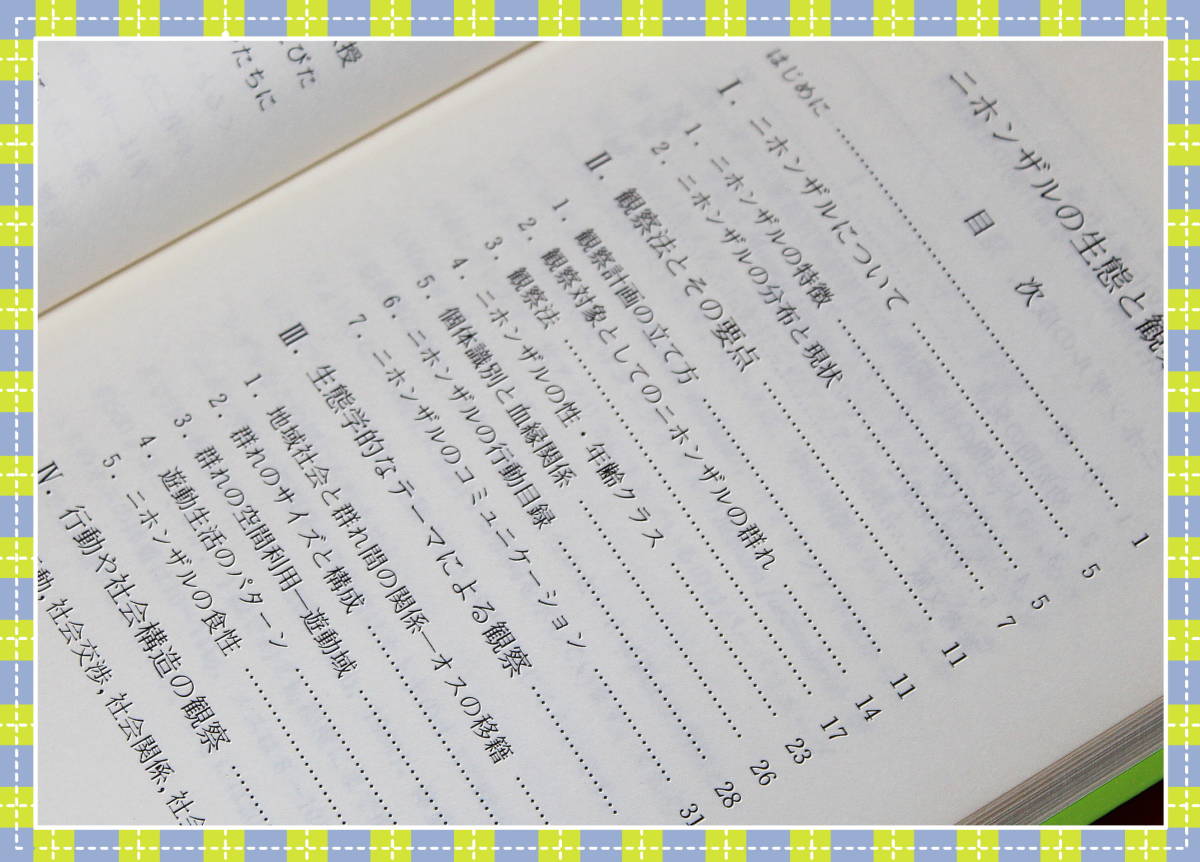 授
びた
たちに
ニホンザルの生態と観
目 次
はじめに……………1
Ⅰ. ニホンザルについて……………5
1. ニホンザルの特徴……………5
2. ニホンザルの分布と現状……………7
Ⅱ. 観察法とその要点……………11
1. 観察計画の立て方……………11
2. 観察対象としてのニホンザルの群れ……………14
3. 観察法……………17
4. ニホンザルの性・年齢クラス……………23
5. 個体識別と血縁関係……………26
6. ニホンザルの行動目録……………28
7. ニホンザルのコミュニケーション……………31
Ⅲ. 生態学的なテーマによる観察……………
1. 地域社会と群れ間の関係―オスの移籍……………
2. 群れのサイズと構成……………
3. 群れの空間利用―遊動域……………
4. 遊動生活のパターン……………
5. ニホンザルの食性……………
Ⅳ. 行動や社会構造の観察……………
動, 社会交渉, 社会関係, 社会